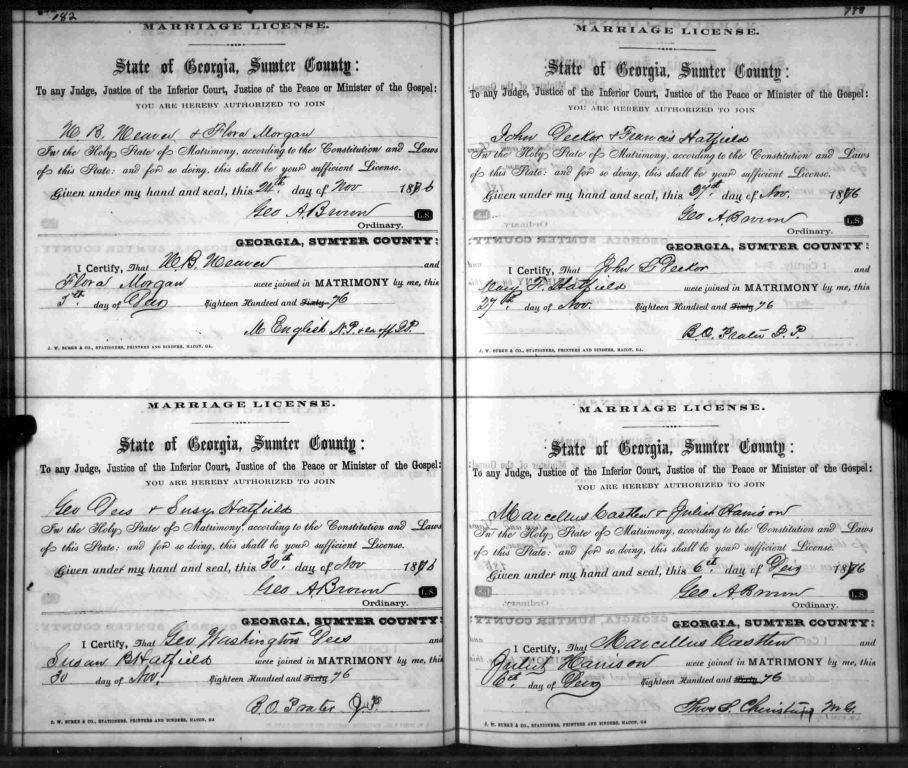 782
MARRIAGE LICENSE.
State of Georgia, Sumter County:
To any Judge, Justice of the Inferior Court, Justice of the Peace or Minister of the Gospel:
YOU ARE HEREBY AUTHORIZED TO JOIN
W B. Weaver & Flora Morgan
In the Holy State of Matrimony, according to the Constitution and Laws
of this State: and for so doing, this shall be your sufficient License.
Given under my hand and seal, this 24th day of Nov 1876
Geo A. Brown L.S.
Ordinary.
GEORGIA, SUMTER COUNTY:
I Certify, That W. B. Weaver and
Flora Morgan were joined in MATRIMONY by me, this
5th day of Eighteen Hundred and Sixty 76
M English N.P. & ex off J.P.
J. W. BURKE & CO., STATIONERS, PRINTERS AND BINDERS, MACON, GA.
MARRIAGE LICENSE.
State of Georgia, Sumter County:
To any Judge, Justice of the Inferior Court, Justice of the Peace or Minister of the Gospel:
YOU ARE HEREBY AUTHORIZED TO JOIN
Geo Dees & Susy Hatfield
In the Holy State of Matrimony, according to the Constitution and Laws
of this State: and for so doing, this shall be your sufficient License.
Given under my hand and seal, this 30th day of Nov 1876
Geo A. Brown L.S.
Ordinary.
GEORGIA, SUMTER COUNTY:
I Certify, That Geo Washington Dees and
Susan B Hatfield were joined in MATRIMONY by me, this
30 day of Nov. Eighteen Hundred and Sixty 76
B. O. Prater J.P.
J. W. BURKE & CO., STATIONERS, PRINTERS AND BINDERS, MACON, GA
MARRIAGE LICENSE.
State of Georgia, Sumter County:
To any Judge, Justice of the Inferior Court, Justice of the Peace or Minister of the Gospel:
YOU ARE HEREBY AUTHORIZED TO JOIN
John Deckor & Francis Hatfield
In the Holy State of Matrimony, according to the Constitution and Laws
of this State: and for so doing, this shall be your sufficient License.
Given under my hand and seal, this 27th day of Nov. 1876
Geo A. Brown L.S.
Ordinary.
GEORGIA, SUMTER COUNTY:
I Certify, That John Deckor and
Mary F. Hatfield were joined in MATRIMONY by me, this
27th day of Nov. Eighteen Hundred and Sixty 76
B. O. Prater J. P.
J. W. BURKE & CO., STATIONERS, PRINTERS AND BINDERS, MACON, GA.
MARRIAGE LICENSE.
State of Georgia, Sumter County:
To any Judge, Justice of the Inferior Court, Justice of the Peace or Minister of the Gospel:
YOU ARE HEREBY AUTHORIZED TO JOIN
Marcellus Castlen & Juliet Harrison
In the Holy State of Matrimony, according to the Constitution and Laws
of this State: and for so doing, this shall be your sufficient License.
Given under my hand and seal, this 6th day of 1876
Geo A. Brown L.S.
Ordinary.
GEORGIA, SUMTER COUNTY:
I Certify, That Marcellus Castlen and
Juliet Harrison were joined in MATRIMONY by me, this
6th day of Eighteen Hundred and Sixty 76
M. G.
J. W. BURKE & CO., STATIONERS, PRINTERS AND BINDERS, MACON, GA